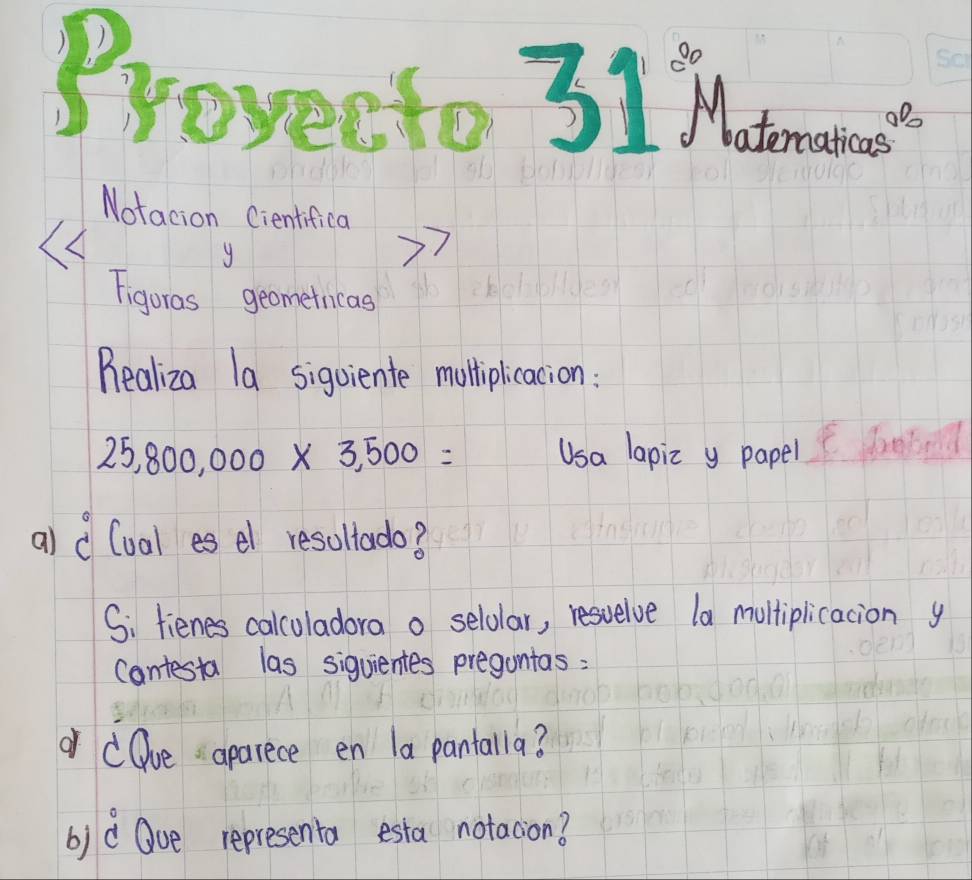 Proyecto 31 Matematicas
Notacion Cientifica
<< y >>
Figuras geometricas
Realiza la siguiente multiplicacion:
25,800,000 x 3,500 = Usa lapiz y papel
a) ¿Cual es el resultado?
Si tienes calculadora o selular, resuelve la multiplicacion y
contesta las siguientes preguntas:
a) ¿Que aparece en la pantalla?
b) ¿Que representa esta notacion?